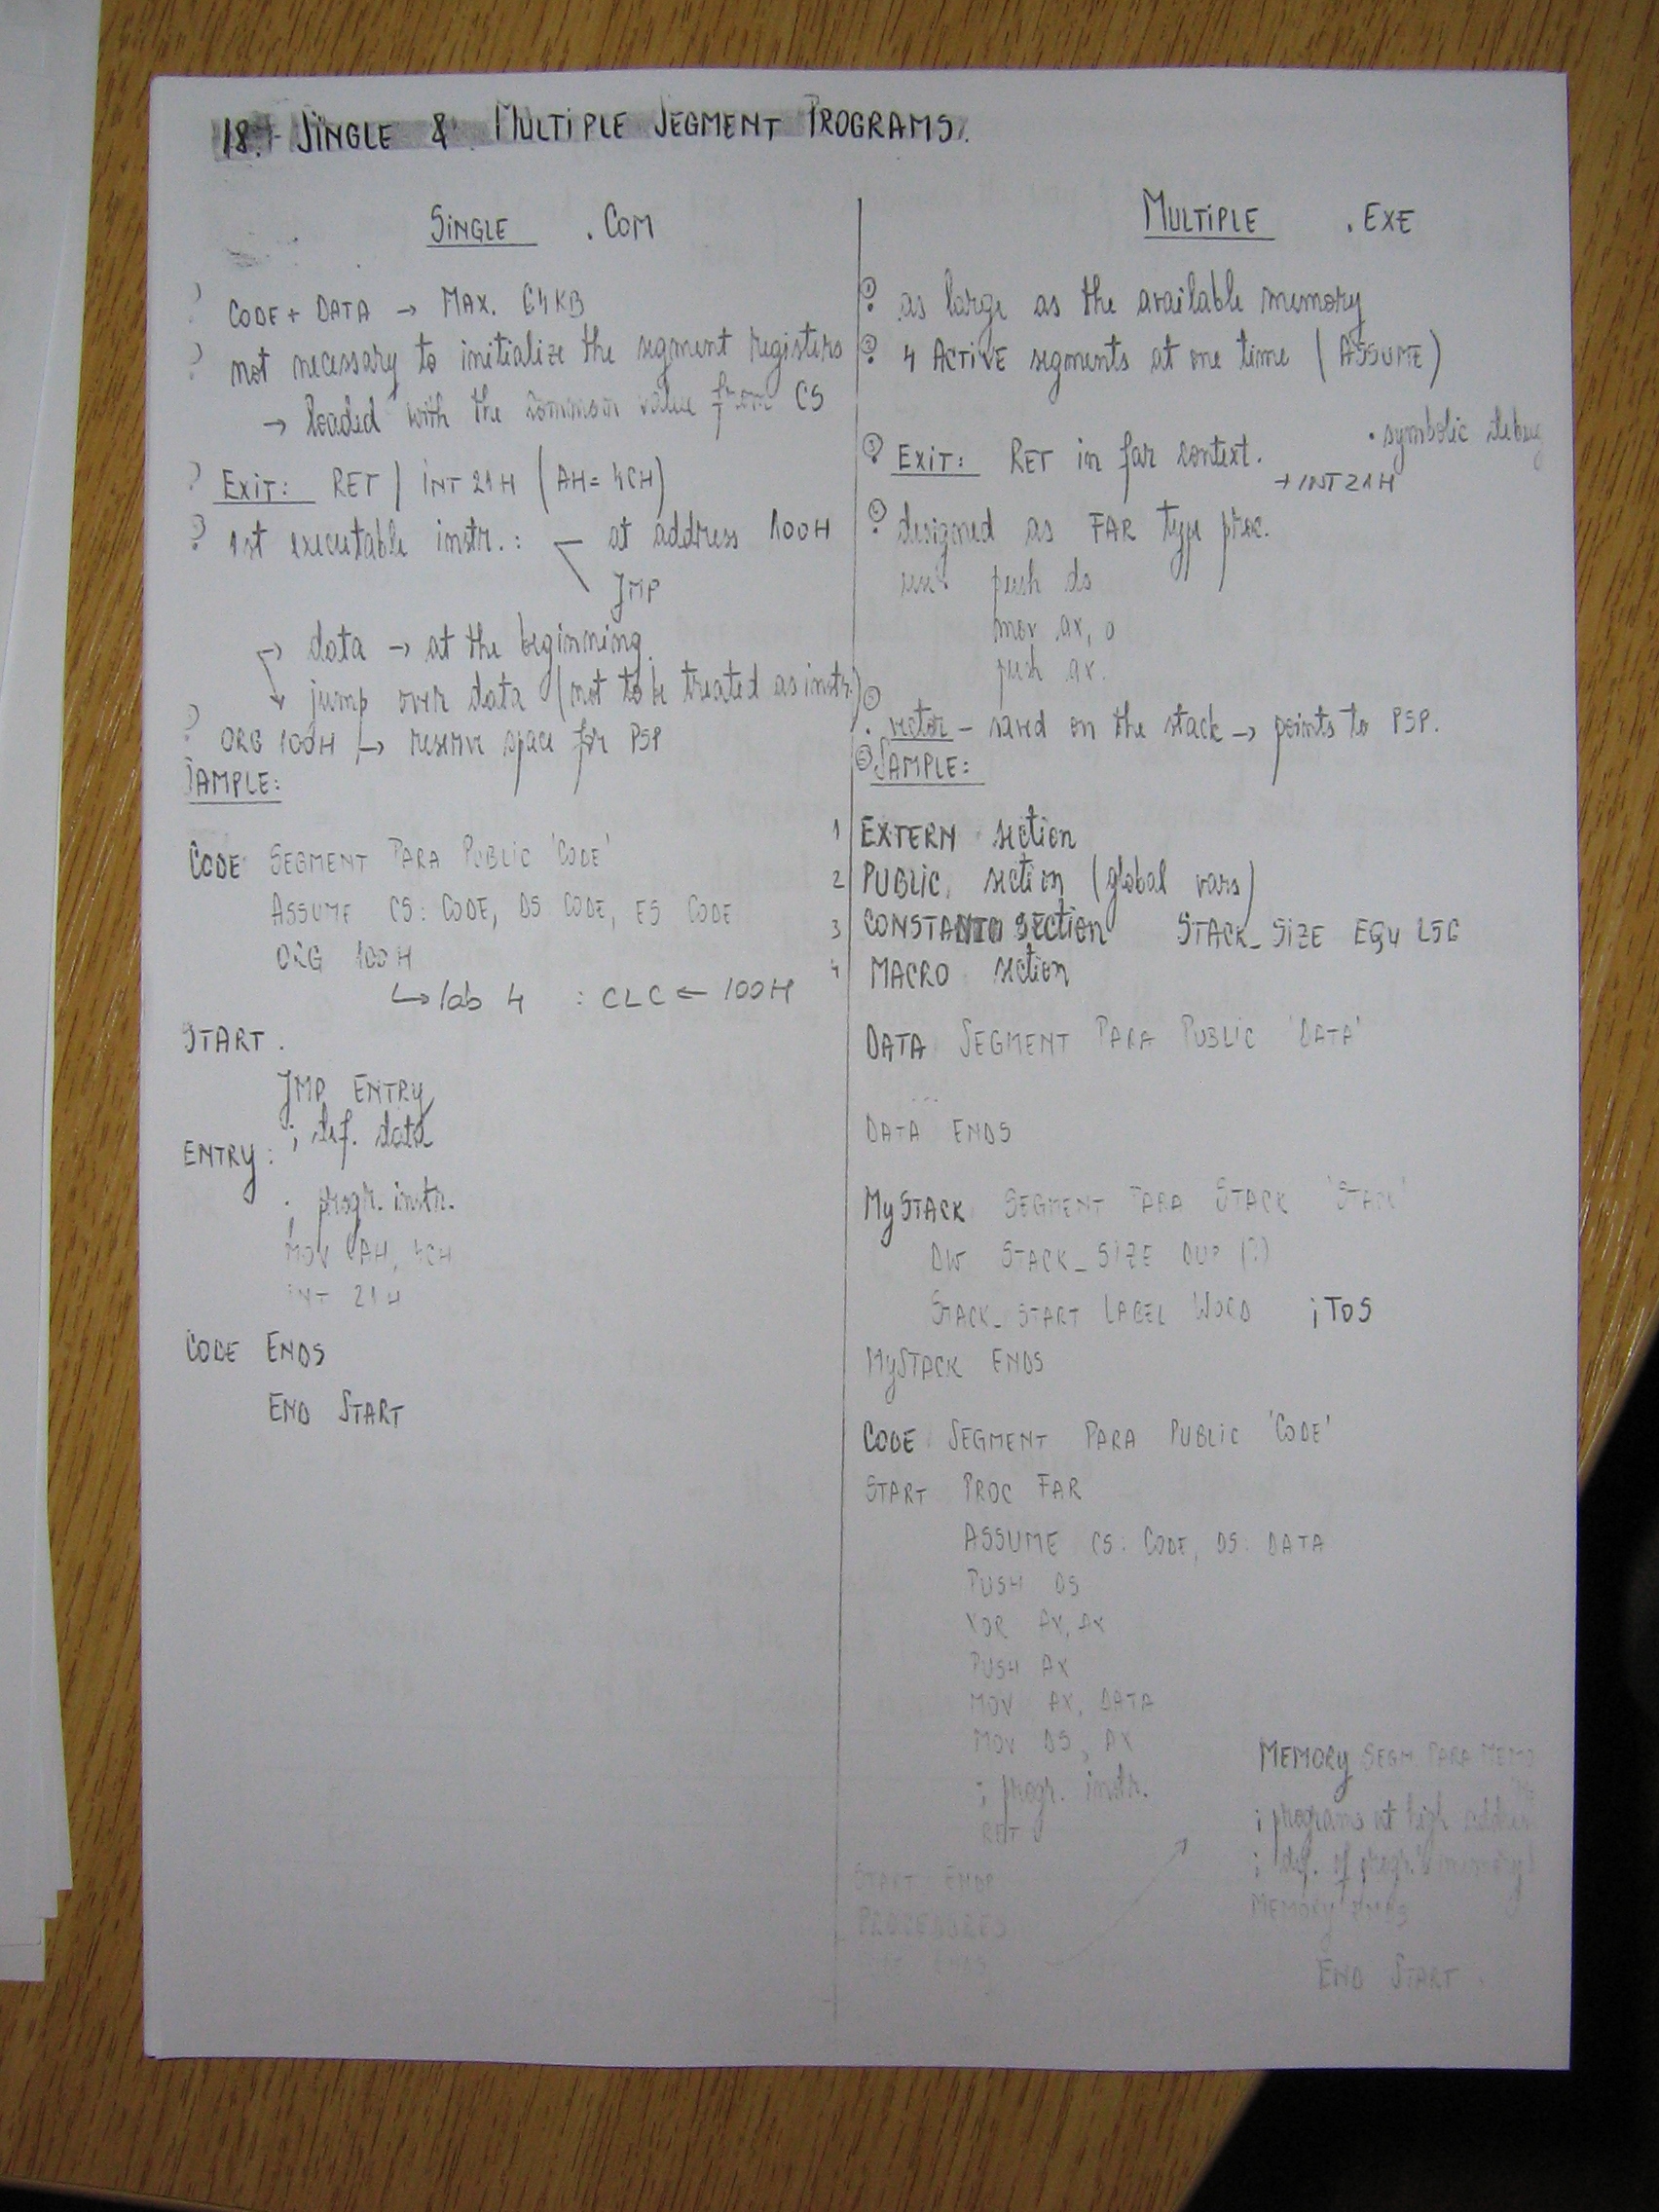 18. SINGLE & MULTIPLE SEGMENT PROGRAMS.
SINGLE .COM
CODE + DATA → MAX. 64KB
not necessary to initialize the segment registers
→ loaded with the common value from CS
EXIT: RET / INT 21H (AH= 4CH)
1st executable instr.: at address 100H
JMP
→ data → at the beginning.
jump over data (not to be treated as instr.)
ORG 100H → reserve space for PSP
SAMPLE:
CODE SEGMENT PARA PUBLIC 'CODE'
ASSUME CS: CODE, DS CODE, ES CODE
ORG 100H
↳ lab 4 : CLC ← 100H
START.
JMP ENTRY
; def. data
ENTRY:
; progr. instr.
MOV AH, 4CH
INT 21H
CODE ENDS
END START
MULTIPLE .EXE
① as large as the available memory
② 4 ACTIVE segments at one time (ASSUME)
• symbolic debug
③ EXIT: RET in far context.
→ INT 21H
④ designed as FAR type proc.
push ds
mov ax, 0
push ax.
⑤ vector – saved on the stack → points to PSP.
⑥ SAMPLE:
1 EXTERN section
2 PUBLIC section (global vars)
3 CONSTANTS section STACK_SIZE EQU 256
4 MACRO section
DATA SEGMENT PARA PUBLIC 'DATA'
...
DATA ENDS
MYSTACK SEGMENT PARA STACK 'STACK'
DW STACK_SIZE DUP (?)
STACK_START LABEL WORD ;TOS
MYSTACK ENDS
CODE SEGMENT PARA PUBLIC 'CODE'
START PROC FAR
ASSUME CS: CODE, DS: DATA
PUSH DS
XOR AX, AX
PUSH AX
MOV AX, DATA
MOV DS, AX
; progr. instr.
RET
START ENDP
PROCEDURES
ENDS
MEMORY SEGM PARA MEMO
; programs at high
; def. of progr.'s memory
MEMORY ENDS
END START